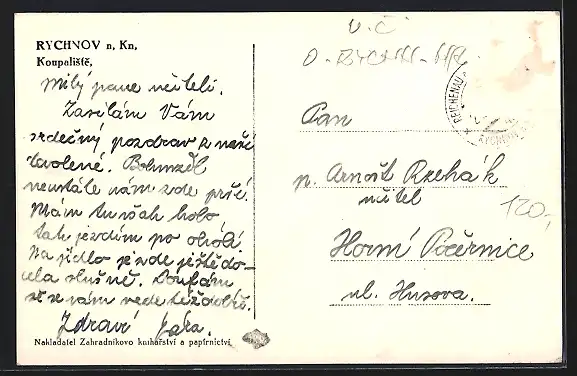 RYCHNOV n. Kn.
Koupaliště.
Milý pane učiteli.
Zasílám Vám
srdečný pozdrav z naší
dovolené. Bohužel
neustále nám zde prší.
Mám tu však kolo,
tak jezdím po okolí.
Na jídlo je zde ještě do-
cela slušně. Doufám
že se vám vede též dobře.
Zdraví Jára.
Nakladatel Zahradníkovo knihařství a papírnictví
V. Č
REICHENAU
RYCHNOV
Pan
p. Arnošt Rzehák
učitel
120,-
Horní Počernice
ul. Husova.